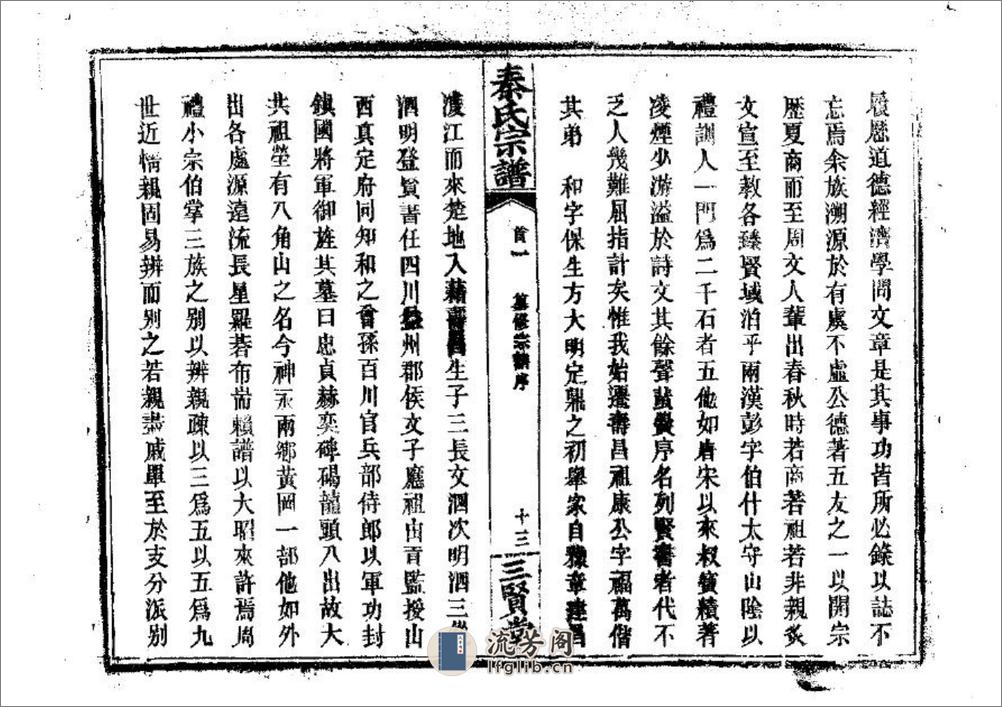 履歷道德經濟學問文章是其事功皆所必錄以誌不
忘焉余族溯源於有虞不虛公德著五友之一以開宗
歷夏商而至周文人輩出春秋時若商若祖若非親炙
文宣至教各臻賢域洎乎兩漢彭字伯什太守山陰以
禮訓人一門為二千石者五他如唐宋以來叔寶積著
凌煙少游溢於詩文其餘聲黌序名列賢書者代不
乏人幾難屈指計矣惟我始遷壽昌祖康公字福萬偕
其弟 和字保生方大明定鼎之初舉家自豫章建昌
秦氏宗譜
首一 纂修宗譜序
十三
三賢堂
渡江而來楚地入籍生子三長文泗次明泗三
泗明登賢書任四川益州郡侯文子應祖由貢監授山
西真定府同知和之曾孫百川官兵部侍郎以軍功封
鎮國將軍御旌其墓曰忠貞赫奕碑碣龍頭八出故大
共祖塋有八角山之名今神永兩鄉黃岡一部他如外
出各處源遠流長星羅碁布耑賴譜以大昭來許焉周
禮小宗伯掌三族之別以辨親疎以三為五以五為九
世近情親固易辨而別之若親盡戚單至於支分派別
流芳阁
lfglib.cn